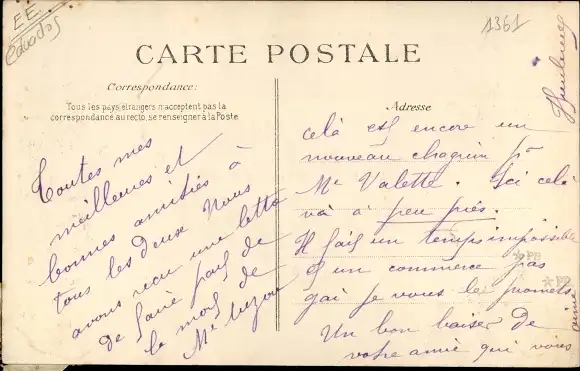 EE.
1361
CARTE POSTALE
Correspondance:
Tous les pays étrangers n'acceptent pas la
correspondance au recto, se renseigner à la Poste
Adresse
Toutes mes
meilleures et
bonnes amitiés à
tous les deux Nous
avons reçu une lettre
de faire part de
la mort de
Mr
celà est encore un
nouveau chagrin pr
Me Valette. Ici celà
va à peu près.
Il fait un temps impossible
et un commerce pas
gai je vous le promets
Un bon baiser de
votre amie qui vous
aime